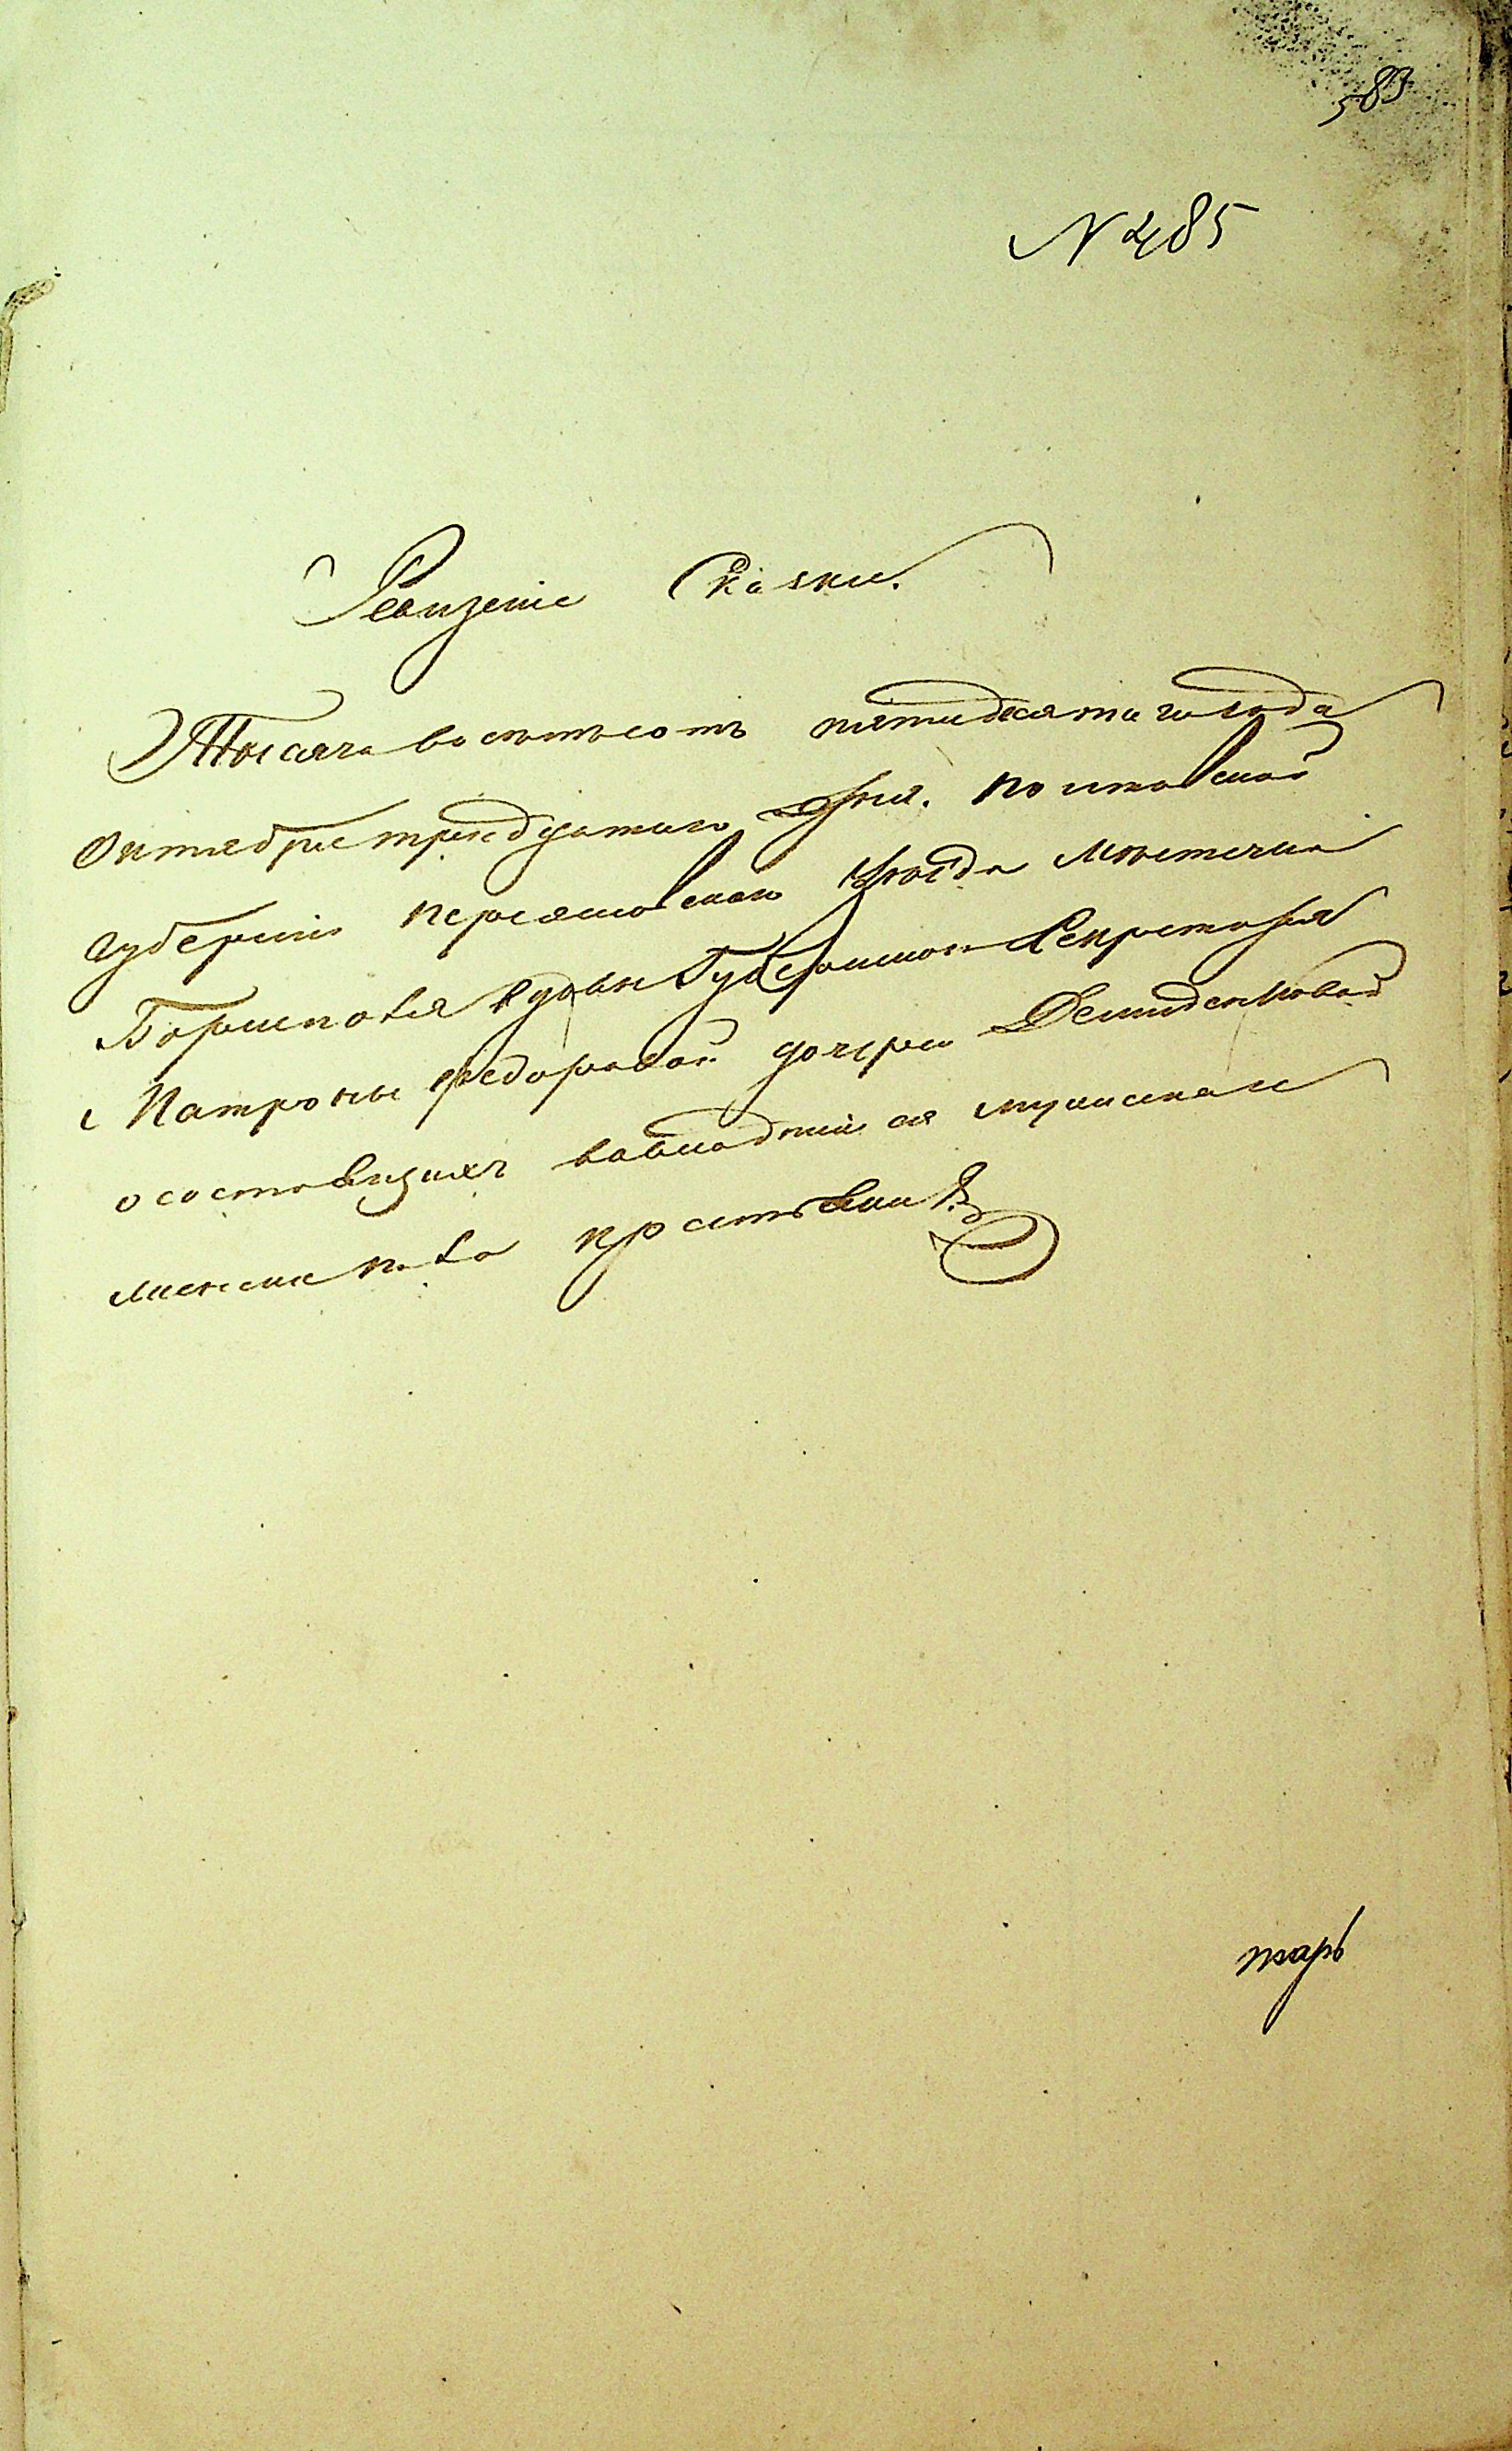 583
N 485
Ревизские Сказки.
Тысяча восемьсотъ пятидесятаго года
Октября тридцатаго Дня. Полтавской
губерніи Переяславскаго уѣзда Мѣстечка
Борисполя вдовы Губернскаго Секретаря
Матроны Федоровой дочери Демиденковой
о состоящихъ во владѣнии ея мужеска и
женска пола крестьянъ
тарь